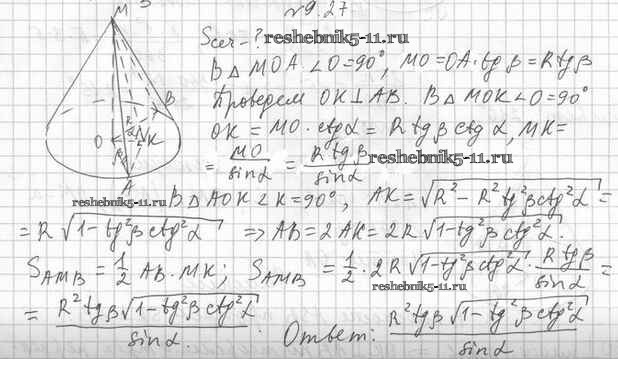 №9.27
M
Sсеч-?
reshebnik5-11.ru
В △ MOA ∠O=90°, MO=OA·tgβ=Rtgβ
Проведем OK⊥AB. В △ MOK ∠O=90°
OK = MO·ctgα = R tgβ ctgα, MK=
= MO/sinα = R tgβ/sinα
reshebnik5-11.ru
B
R
O
α
K
β
A
reshebnik5-11.ru
В △ AOK ∠K=90°, AK=√(R²-R²tg²β ctg²α)=
=R√(1-tg²β ctg²α) ⇒ AB=2AK=2R√(1-tg²β ctg²α).
S_AMB=1/2 AB·MK; S_AMB=1/2·2R√(1-tg²β ctg²α)·R tgβ/sinα=
reshebnik5-11.ru
= R²tgβ√(1-tg²β ctg²α)/sinα. Ответ: R²tgβ√(1-tg²β ctg²α)/sinα